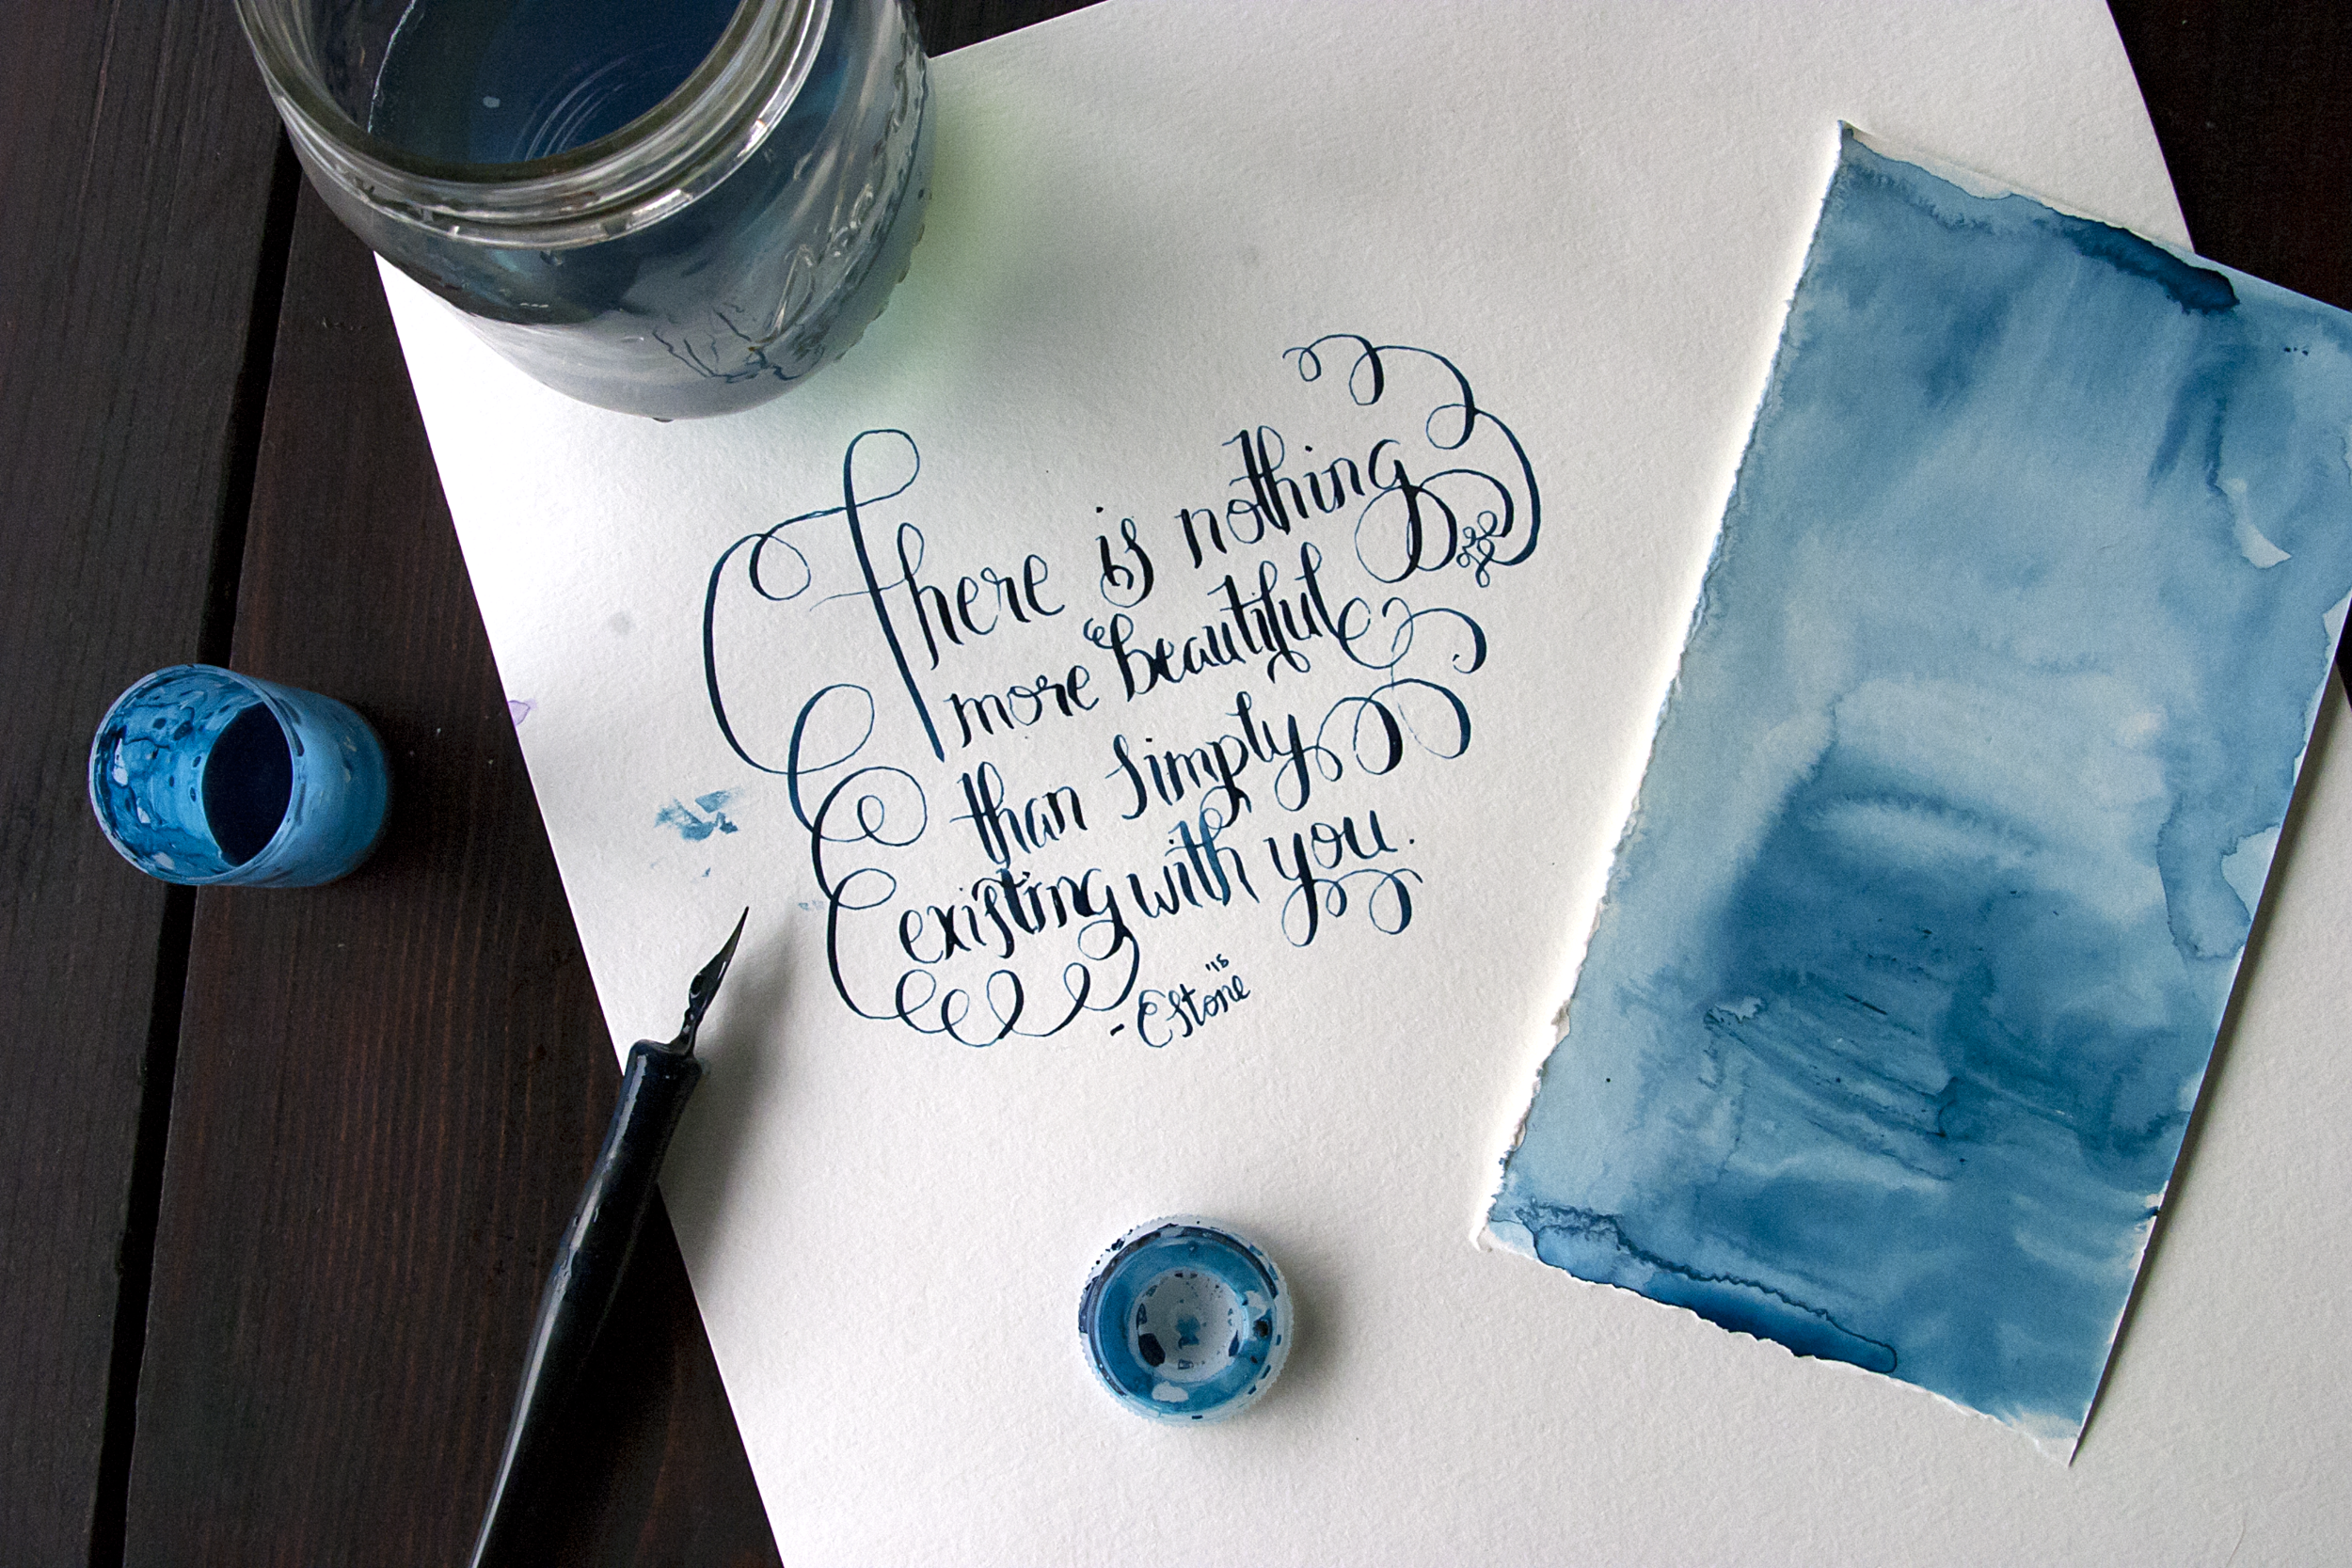 There is nothing
more beautiful
than simply
existing with you.
'15
- EStone